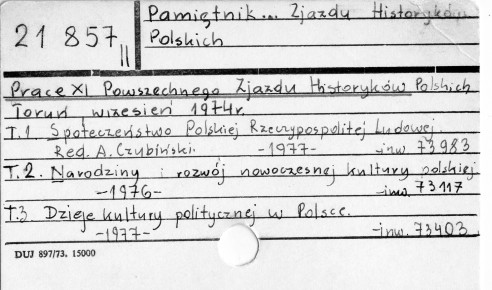 Pamiętnik... Zjazdu Historyków
Polskich
21 857 II
Prace XI Powszechnego Zjazdu Historyków Polskich
Toruń, wrzesień 1974r.
T.1. Społeczeństwo Polskiej Rzeczypospolitej Ludowej.
Red. A. Czubiński. -1977- -inw. 73983
T.2. Narodziny i rozwój nowoczesnej kultury polskiej
-1976- -inw. 73117
T.3. Dzieje kultury politycznej w Polsce.
-1977- -inw. 73403
DUJ 897/73. 15000